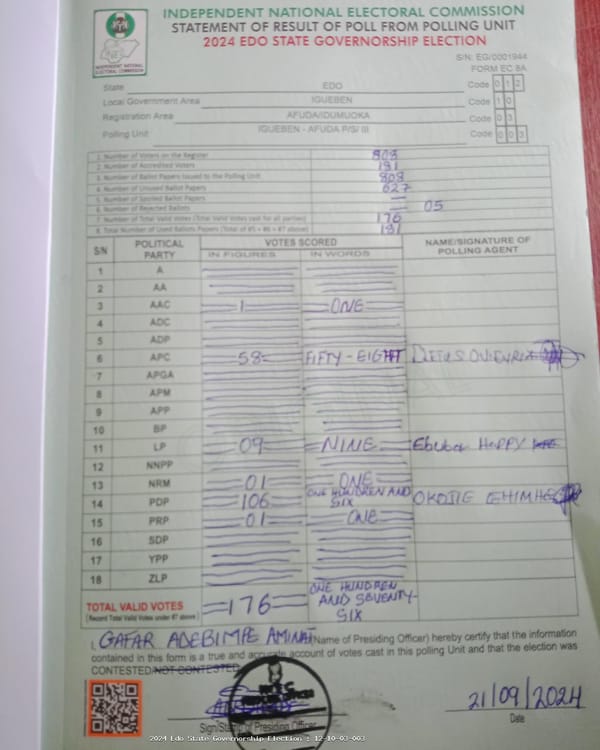 INDEPENDENT NATIONAL ELECTORAL COMMISSION
STATEMENT OF RESULT OF POLL FROM POLLING UNIT
2024 EDO STATE GOVERNORSHIP ELECTION
INDEPENDENT NATIONAL ELECTORAL COMMISSION
S/N: EG/0001944
FORM EC 8A
State EDO Code 0 1 2
Local Government Area IGUEBEN Code 1 0
Registration Area AFUDA/IDUMUOKA Code 0 3
Polling Unit IGUEBEN - AFUDA P/S/ III Code 0 0 3
1. Number of Voters on the Register 808
2. Number of Accredited Voters 181
3. Number of Ballot Papers Issued to the Polling Unit 808
4. Number of Unused Ballot Papers 627
5. Number of Spoiled Ballot Papers
6. Number of Rejected Ballots 05
7. Number of Total Valid Votes (Total Valid Votes cast for all parties) 176
8. Total Number of Used Ballots Papers (Total of #5 + #6 + #7 above) 181
S/N POLITICAL PARTY VOTES SCORED NAME/SIGNATURE OF POLLING AGENT
IN FIGURES IN WORDS
1 A
2 AA
3 AAC 1 ONE
4 ADC
5 ADP
6 APC 58 FIFTY-EIGHT
7 APGA
8 APM
9 APP
10 BP
11 LP 09 NINE HAPPY
12 NNPP
13 NRM 01 ONE
14 PDP 106 ONE HUNDRED AND SIX OKOJIE EHIMHE
15 PRP 01 ONE
16 SDP
17 YPP
18 ZLP
TOTAL VALID VOTES 176 ONE HUNDREN AND SEVENTY-SIX
(Record Total Valid Votes under #7 above)
I, GAFAR ADEBIMPE AMINAT (Name of Presiding Officer) hereby certify that the information
contained in this form is a true and accurate account of votes cast in this polling Unit and that the election was
CONTESTED/NOT CONTESTED
21/09/2024
Sign/Stamp of Presiding Officer Date
2024 Edo State Governorship Election : 12-10-03-003